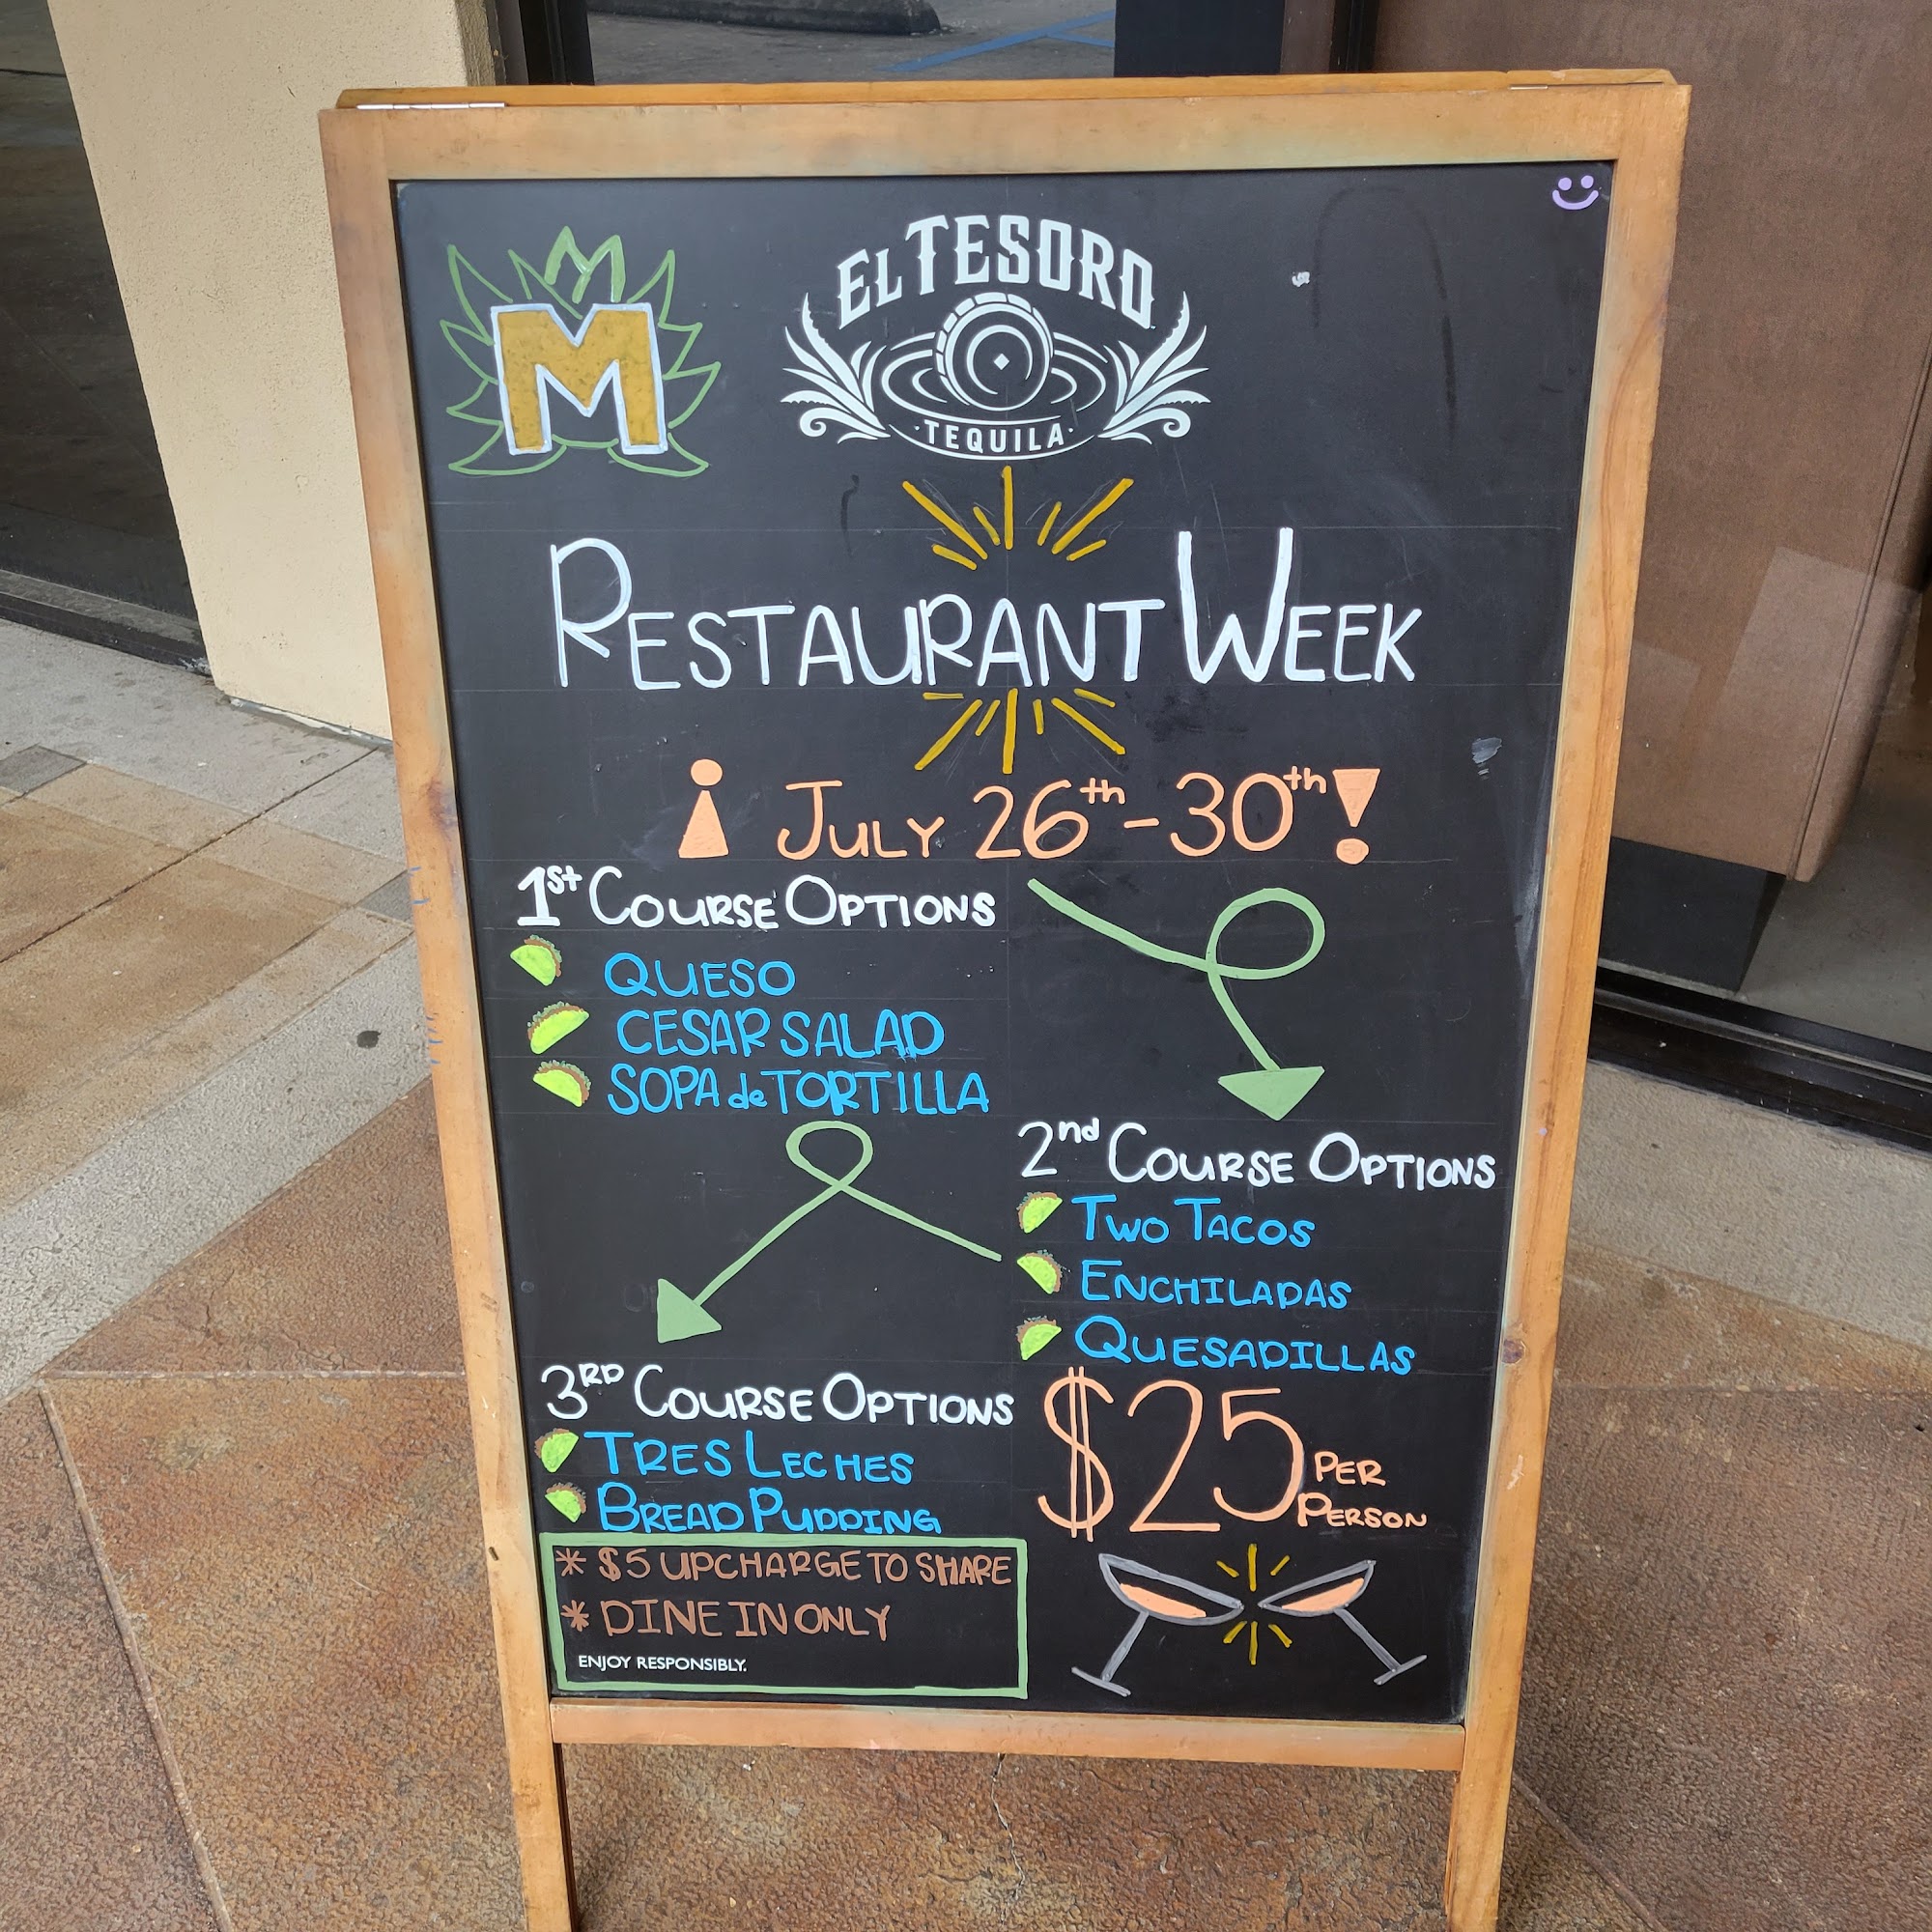 M
EL TESORO
TEQUILA
RESTAURANT WEEK
¡ JULY 26th - 30th!
1st COURSE OPTIONS
QUESO
CESAR SALAD
SOPA de TORTILLA
2nd COURSE OPTIONS
TWO TACOS
ENCHILADAS
QUESADILLAS
3RD COURSE OPTIONS
TRES LECHES
BREAD PUDDING
$25 PER PERSON
* $5 UPCHARGE TO SHARE
* DINE IN ONLY
ENJOY RESPONSIBLY.